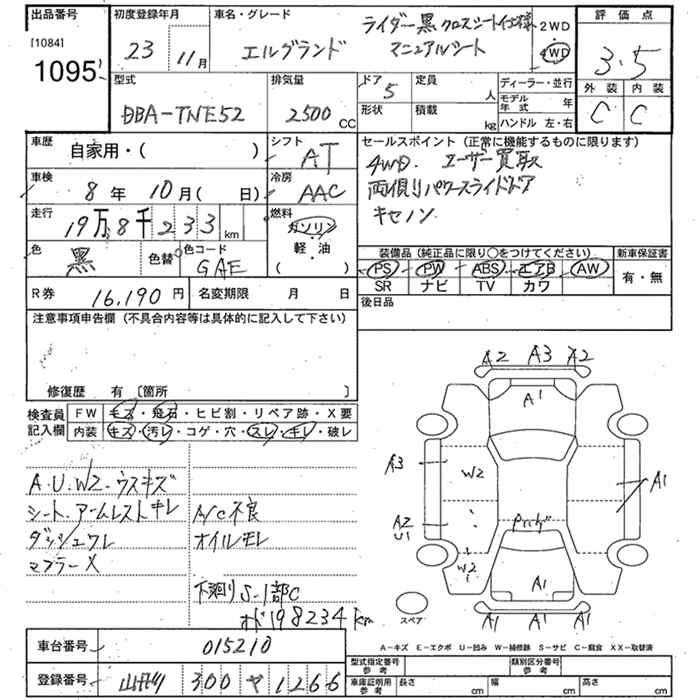 出品番号
[1084]
1095
初度登録年月
23 11月
車名・グレード
エルグランド
ライダー黒 クロスシート仕様
マニュアルシート
2WD
4WD
評価点
3.5
外装 内装
C C
型式
DBA-TNE52
排気量
2500 CC
ドア 5
形状
定員 人
積載 kg
ディーラー・並行
モデル年式 年
ハンドル 左・右
車歴
自家用・( )
シフト
AT
車検
8年 10月( 日)
冷房
AAC
走行
19万8千233km
燃料
ガソリン
軽・油
( )
色
黒
色替
色コード
GAE
R券 16,190円
名変期限 月 日
セールスポイント(正常に機能するものに限ります)
4WD. ユーザー買取
両側リパワースライドドア
キセノン
装備品(純正品に限り○をつけてください)
新車保証書
PS PW ABS エアB AW
SR ナビ TV カワ
有・無
後日品
注意事項申告欄(不具合内容等は具体的に記入して下さい)
修復歴 有〔箇所 〕
検査員記入欄
FW キズ・飛石・ヒビ割・リペア跡・X要
内装 キズ・汚レ・コゲ・穴・スレ・キレ・破レ
A.U.W2.ウスキズ
シート.アームレストキレ
ダッシュワレ
マフラーX
A/C不良
オイルモレ
下廻りS-1部C
オド198234km
A2 A3 A2
A1
A3
W2
A1
A2
U1
W2
A1
A1 A1 A1
スペア
A-キズ E-エクボ U-凹み W-補修跡 S-サビ C-腐食 XX-取替済
車台番号 015210
登録番号 300 ヤ 1266
型式指定番号 参考
類別区分番号 参考
車庫証明用 参考
長さ cm
幅 cm
高さ cm